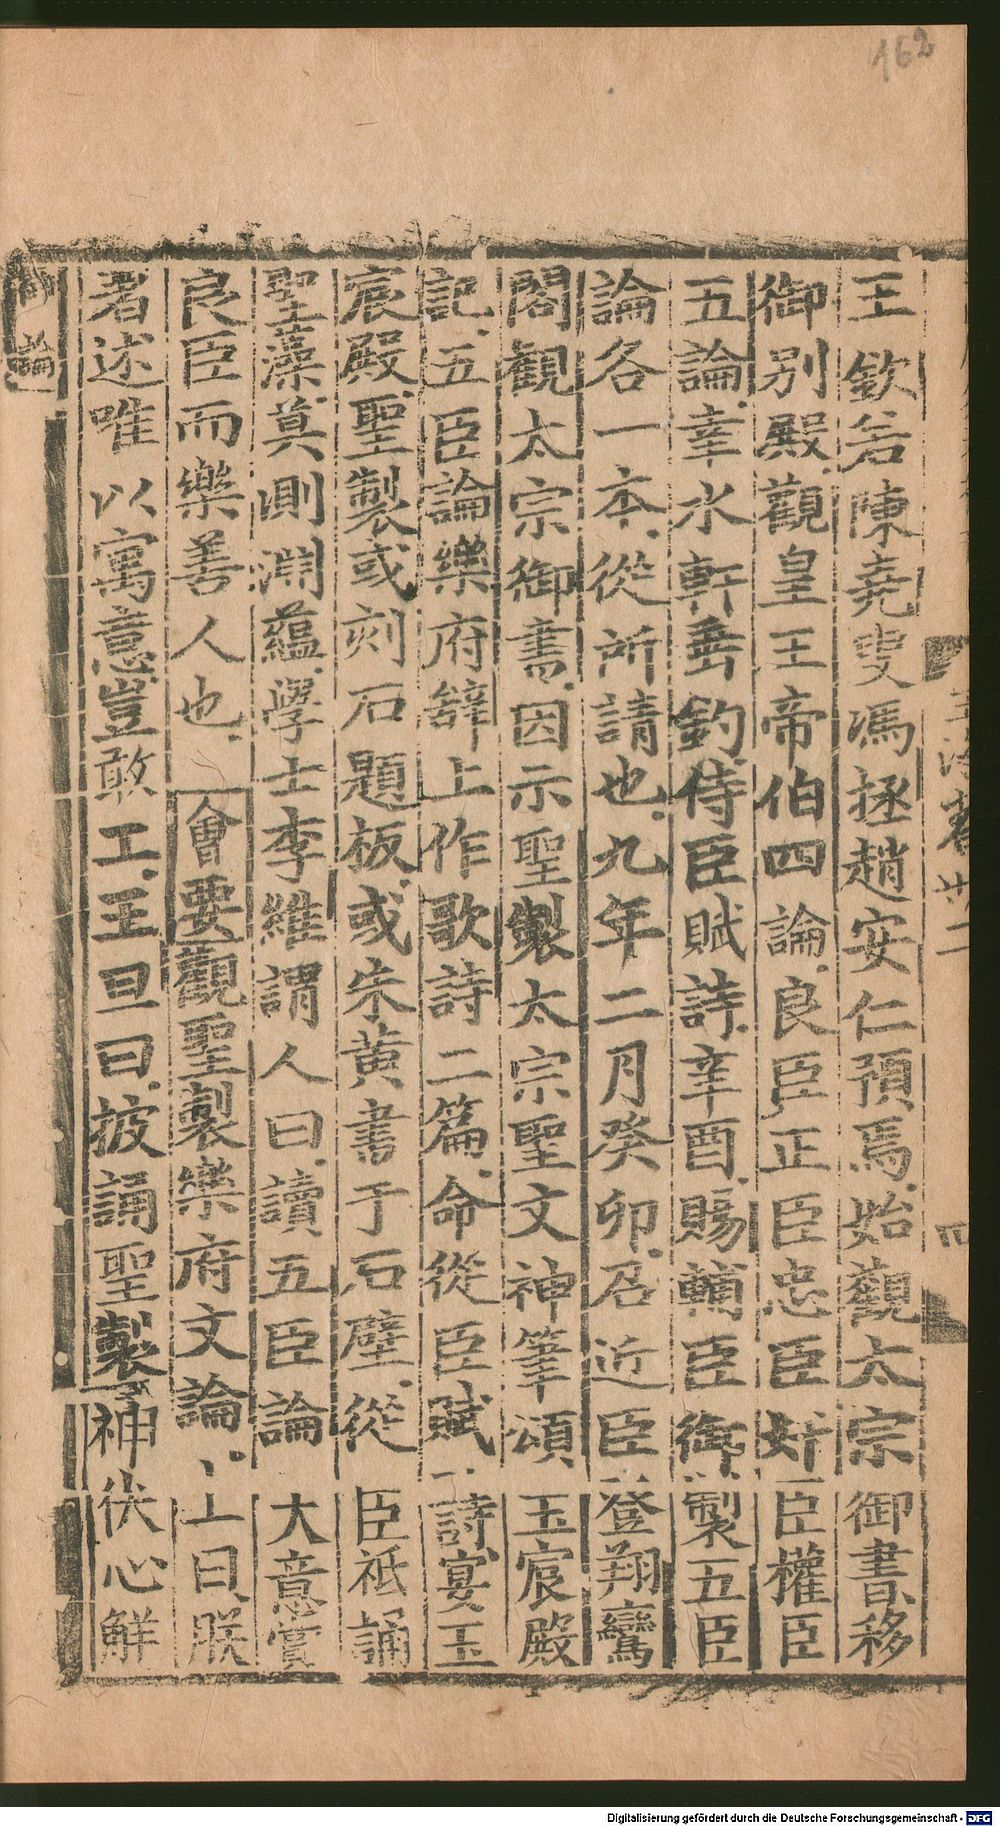 162
王欽若陳堯叟馮拯趙安仁預焉始觀太宗御書移
御別殿觀皇王帝伯四論良臣正臣忠臣奸臣權臣
五論幸水軒垂釣侍臣賦詩辛酉賜輔臣御製五臣
論各一本從所請也九年二月癸卯召近臣登翔鸞
閣觀太宗御書因示聖製太宗聖文神筆頌玉宸殿
記五臣論樂府辭上作歌詩二篇命從臣賦詩宴玉
宸殿聖製或刻石題板或朱黃書于石壁從臣祇誦
聖藻莫測淵蘊學士李維謂人曰讀五臣論大意賞
良臣而樂善人也會要觀聖製樂府文論上曰朕
著述唯以寓意豈敢工王旦曰披誦聖製神伏心觧
論
玉海卷廿二
四
Digitalisierung gefördert durch die Deutsche Forschungsgemeinschaft - DFG